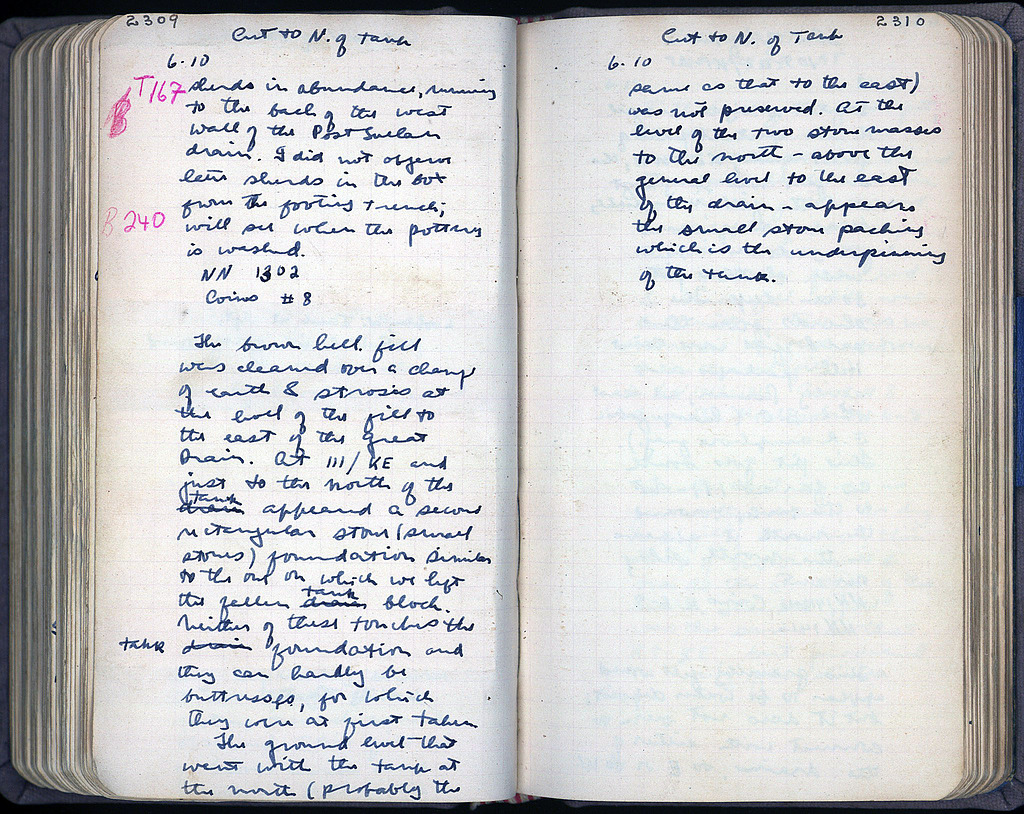 2309
Cut to N. of Tank
6.10
T167 sherds in abundance, running
B
to the back of the west
wall of the Post Sullan
drain. I did not observe
late sherds in the lot
from the footing trench;
B 240 will see when the pottery
is washed.
NN 1302
Coins # 8
The brown hell. fill
was cleaned over a change
of earth & stroses at
the level of the fill to
the east of the Great
Drain. At III/KE and
just to the north of the
tank
drain appeared a second
rectangular stone (small
stones) foundation similar
to the one on which we left
the fallen drain tank block.
Neither of these touches the
tank drain foundation and
they can hardly be
buttresses, for which
they were at first taken
The ground level that
went with the tank at
the north (probably the
2310
Cut to N. of Tank
6.10
same as that to the east)
was not preserved. At the
level of the two stone masses
to the north - above the
general level to the east
of the drain - appears
the small stone packing
which is the underpinning
of the tank.